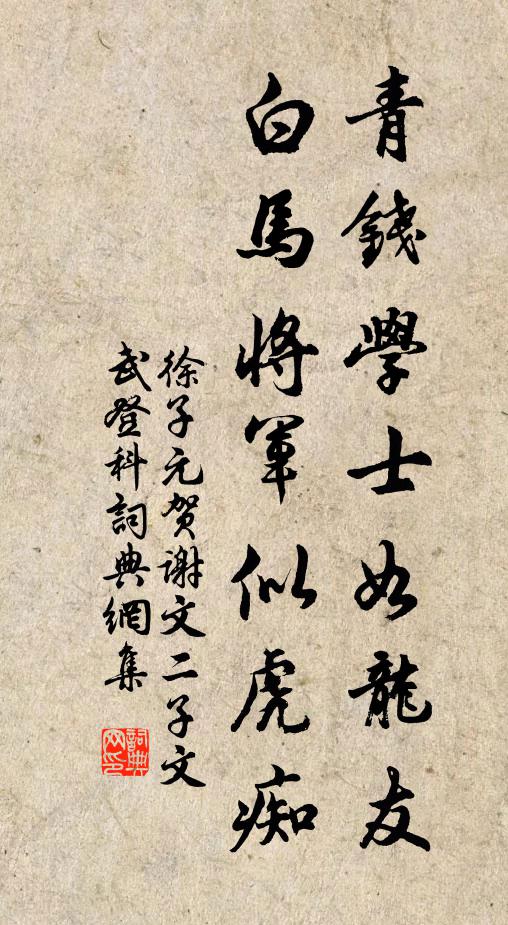 青錢學士如龍友
白馬將軍似虎痴
徐子元贺谢文二子文
武登科詞典網集
詞典網印